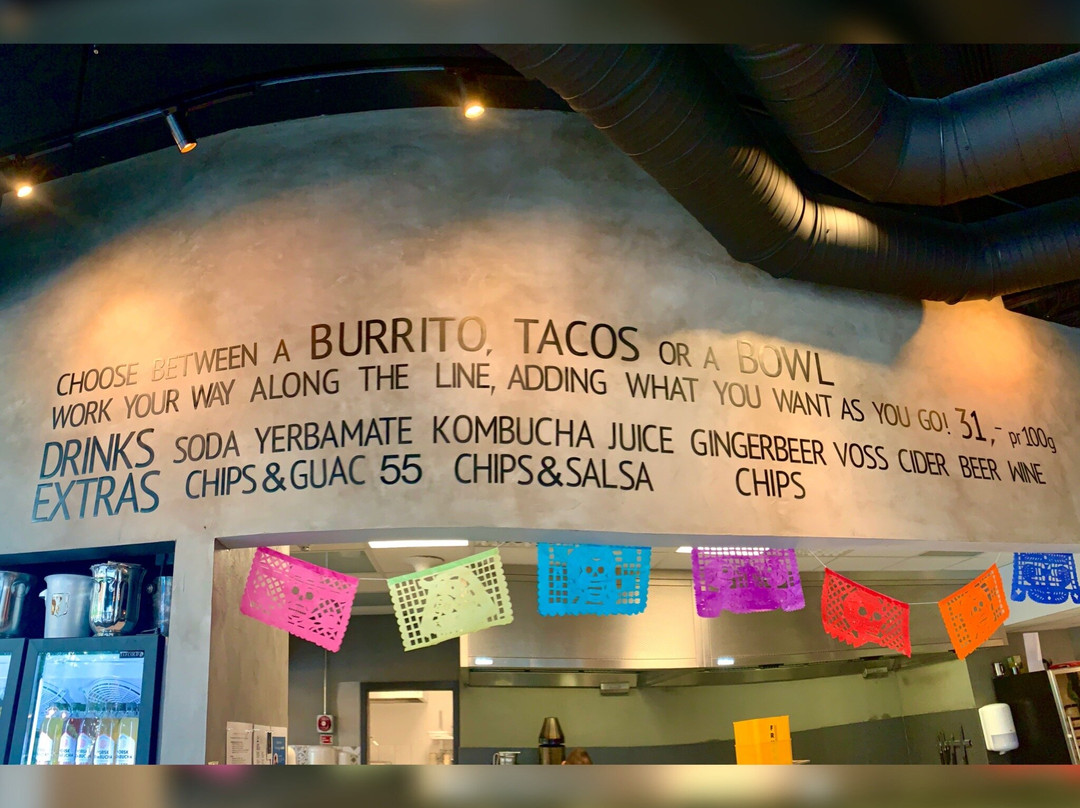 CHOOSE BETWEEN A BURRITO, TACOS OR A BOWL
WORK YOUR WAY ALONG THE LINE, ADDING WHAT YOU WANT AS YOU GO! 31,- pr100g
DRINKS SODA YERBAMATE KOMBUCHA JUICE GINGERBEER VOSS CIDER BEER WINE
EXTRAS CHIPS&GUAC 55 CHIPS&SALSA CHIPS